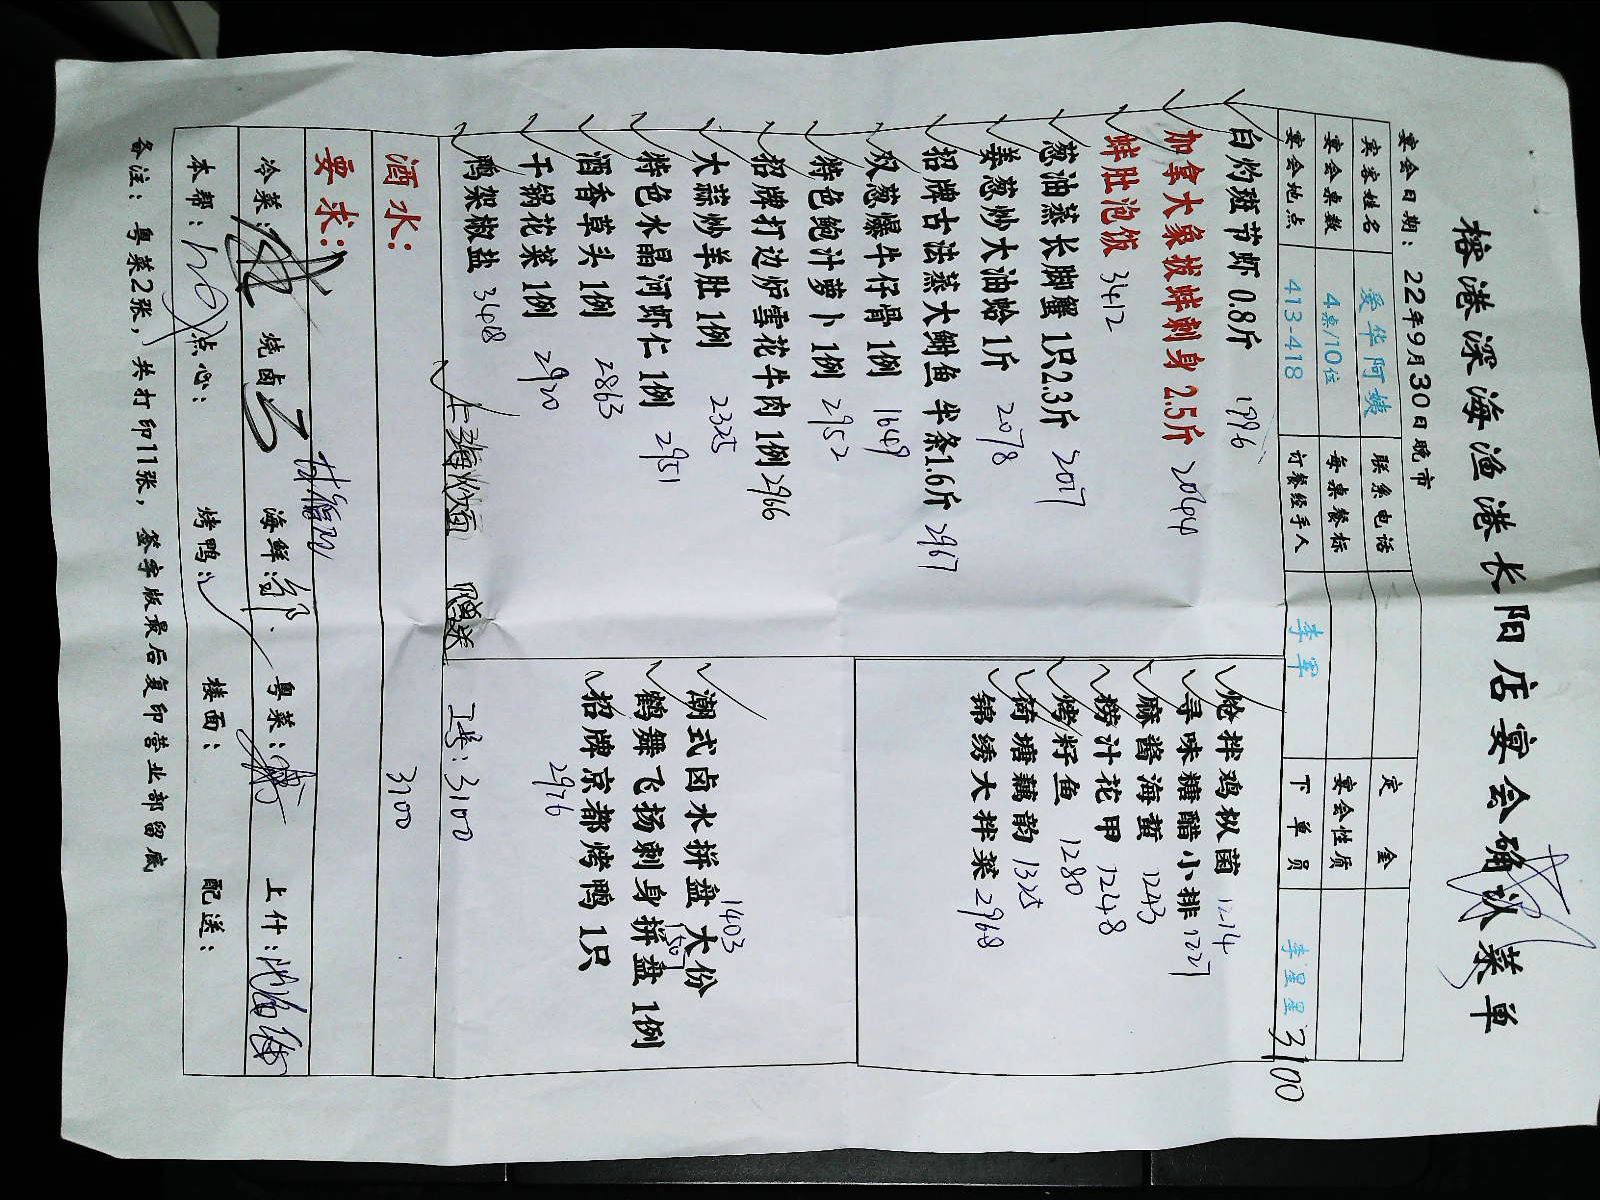 榕港深海渔港长阳店宴会确认菜单
宴会日期：22年9月30日晚市
宾客姓名 爱华阿姨 联系电话 定金
宴会桌数 4桌/10位 每桌餐标 宴会性质
宴会地点 413-418 订餐经手人 李军 下单员 李星星 3100
白灼斑节虾 0.8斤 1996
加拿大象拔蚌刺身 2.5斤 2044
蚌肚泡饭 3412
葱油蒸长脚蟹 1只2.3斤 2017
姜葱炒大油蛤 1斤 2078
招牌古法蒸大鲥鱼 半条1.6斤 2967
双葱爆牛仔骨 1例 1649
特色鲍汁萝卜 1例 2952
招牌打边炉雪花牛肉 1例 2966
大蒜炒羊肚 1例 2325
特色水晶河虾仁 1例 2951
酒香草头 1例 2863
干锅花菜 1例 2920
鸭架椒盐 348
炝拌鸡枞菌 1214
寻味糖醋小排 1227
麻酱海蜇 1243
捞汁花甲 1248
烤籽鱼 1280
荷塘藕韵 1325
锦绣大拌菜 2968
潮式卤水拼盘 大份 1403
鹤舞飞扬刺身拼盘 1例 1507
招牌京都烤鸭 1只
2976
生日面 赠送 工号：3100
酒水： 3100
要求：
冷菜： 烧卤： 海鲜： 粤菜： 上什：
本帮： 点心： 烤鸭： 楼面： 配送：
备注：粤菜2张，共打印11张，签字版最后复印营业部留底